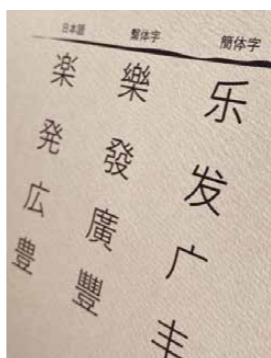 日本語 繁体字 簡体字
楽 樂 乐
発 發 发
広 廣 广
豊 豐 丰